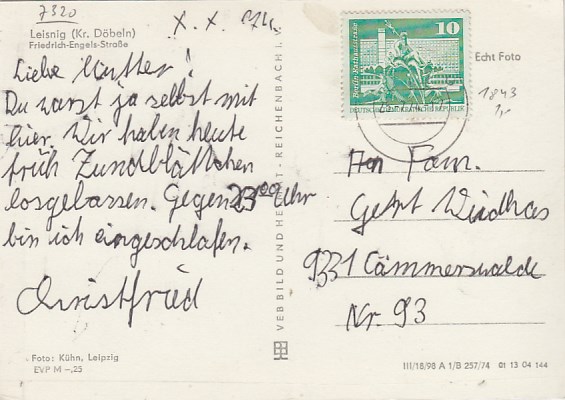 7320
X. X.
Leisnig (Kr. Döbeln)
Friedrich-Engels-Straße
Liebe Mutter!
Du warst ja selbst mit
hier. Wir haben heute
früh
losgelassen. Gegen 23⁰⁰ Uhr
bin ich eingeschlafen.
Christfried
Foto: Kühn, Leipzig
EVP M –,25
VEB BILD UND HEIMAT · REICHENBACH I. V.
10
Berlin, Rathausstraße
DEUTSCHE DEMOKRATISCHE REPUBLIK
Echt Foto
1843
1,-
An Fam.
Gehrt
9331 Cämmerswalde
Nr. 93
III/18/98 A 1/B 257/74 01 13 04 144